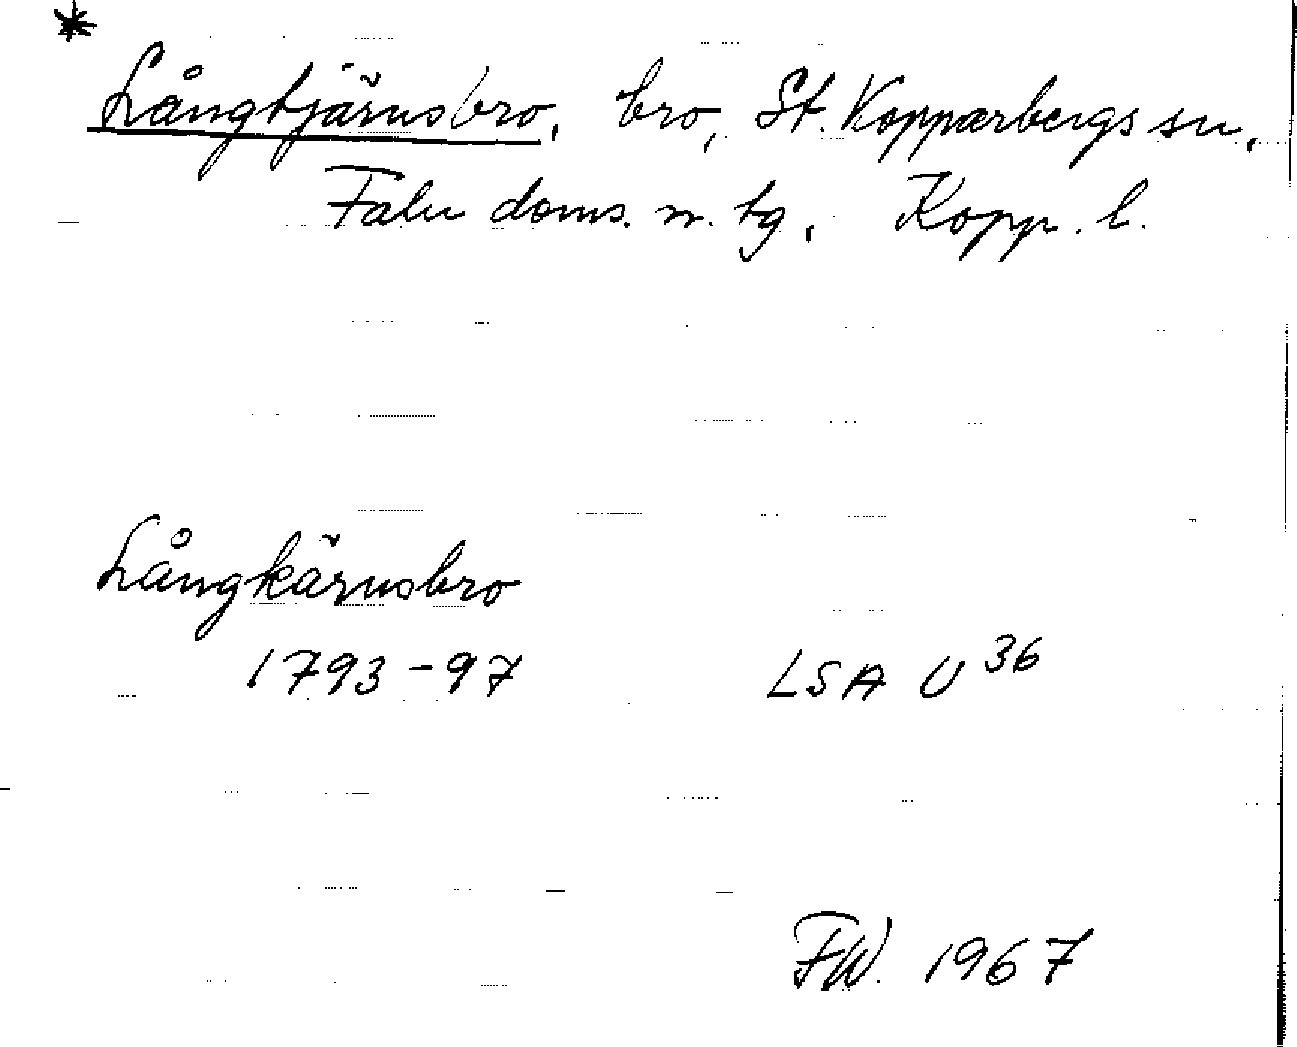 *
Långtjärnsbro, bro, St. Kopparbergs sn,
Falu doms. n. tg, Kopp. l.
Långkärnsbro
1793-97 LSA U 36
FW. 1967